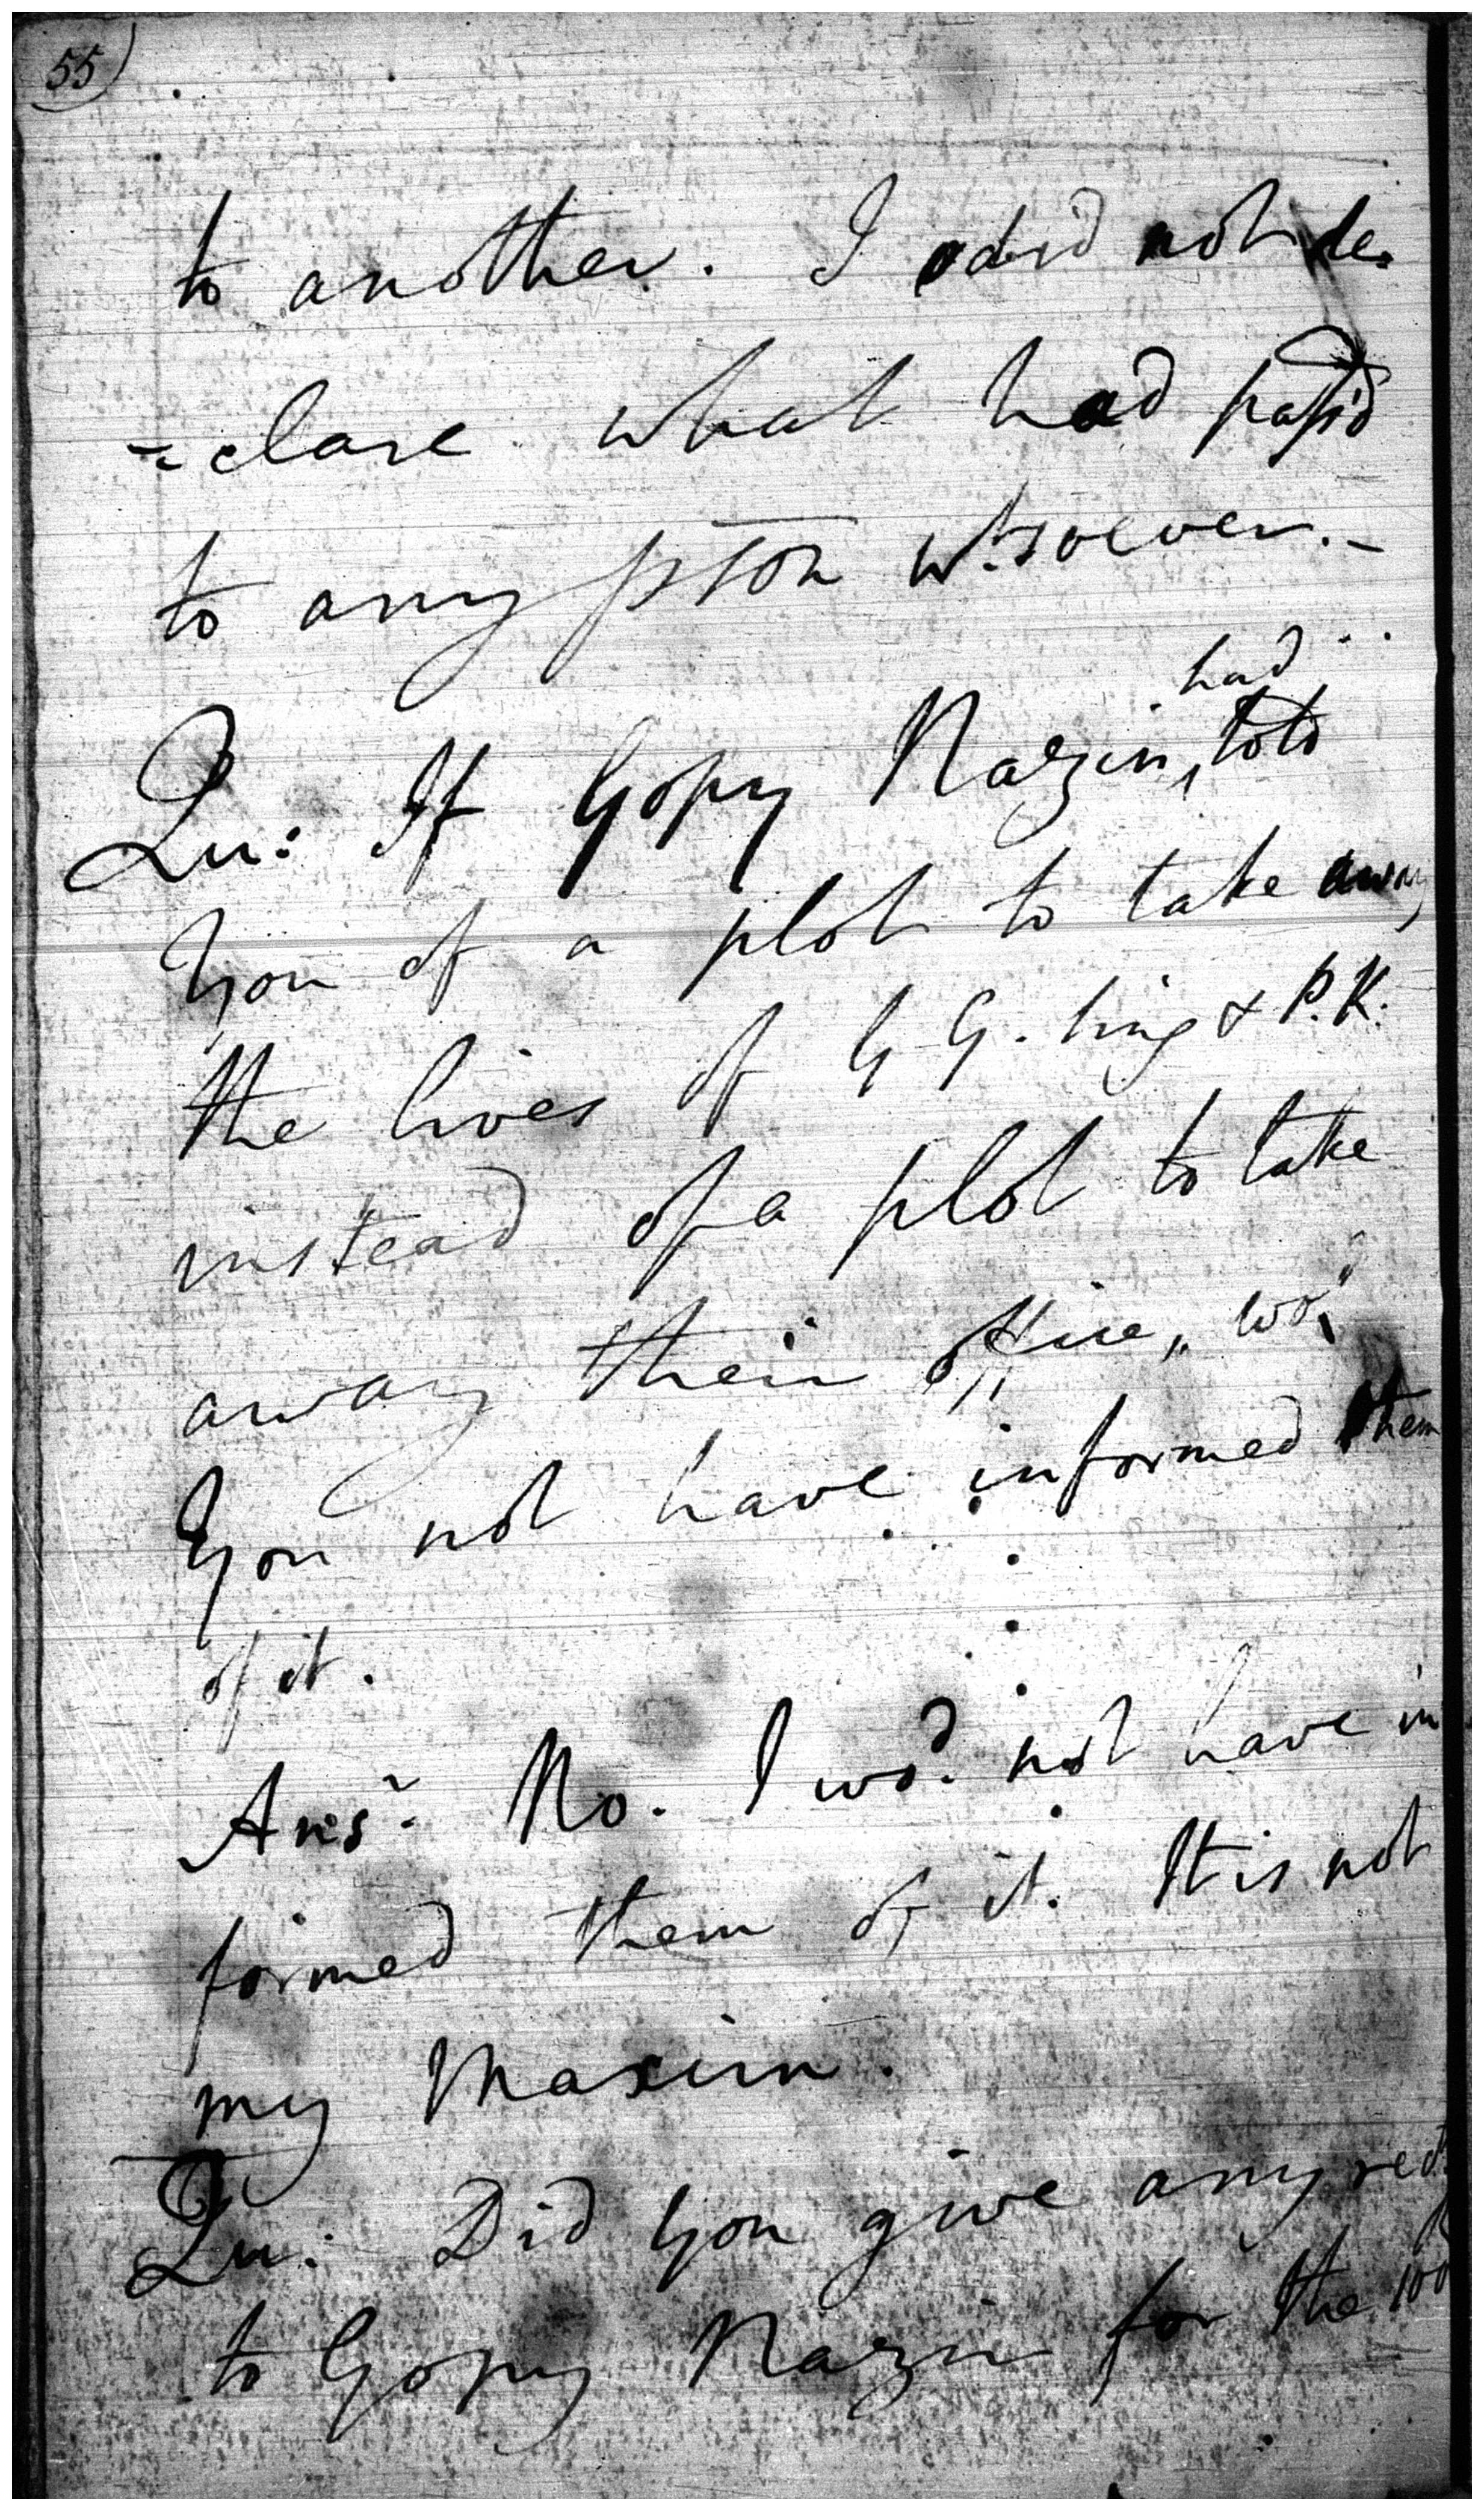 55
to another. I did not de-
-clare what had pass'd
to any pson wt.soever. -
had
Qu: If Gopy Nazin ‸ told
You of a plot to take away
the lives of G G. Sing & P. K.
instead of a plot to take
away their office, wod.
You not have informed them
of it.
Ansr. No. I wod. not have in
formed them of it. It is not
my Maxim.
Qu: Did You give any rect.
to Gopy Nazin for the 100